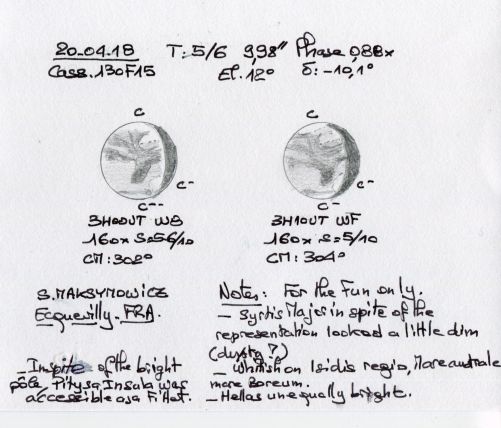 20-04-18 T: 5/6 9,98" Phase 0,88x
Cass. 130F15 El. 12° δ: -10,1°
C C
C- C-
C-- C-
3H00UT WB 3H10UT WF
160x S=5-6/10 160x S=5/10
CM: 302° CM: 304°
S. MAKSYMOWICZ
Ecquevilly. FRA.
Notes: For the Fun only.
- Syrtis Major in spite of the
representation looked a little dim
(dusty?)
- Whitish on Isidis regio, Mare australe
mare Boreum.
- Hellas unequally bright.
- In spite of the bright
pôle, Pityusa Insula was
accessible as a